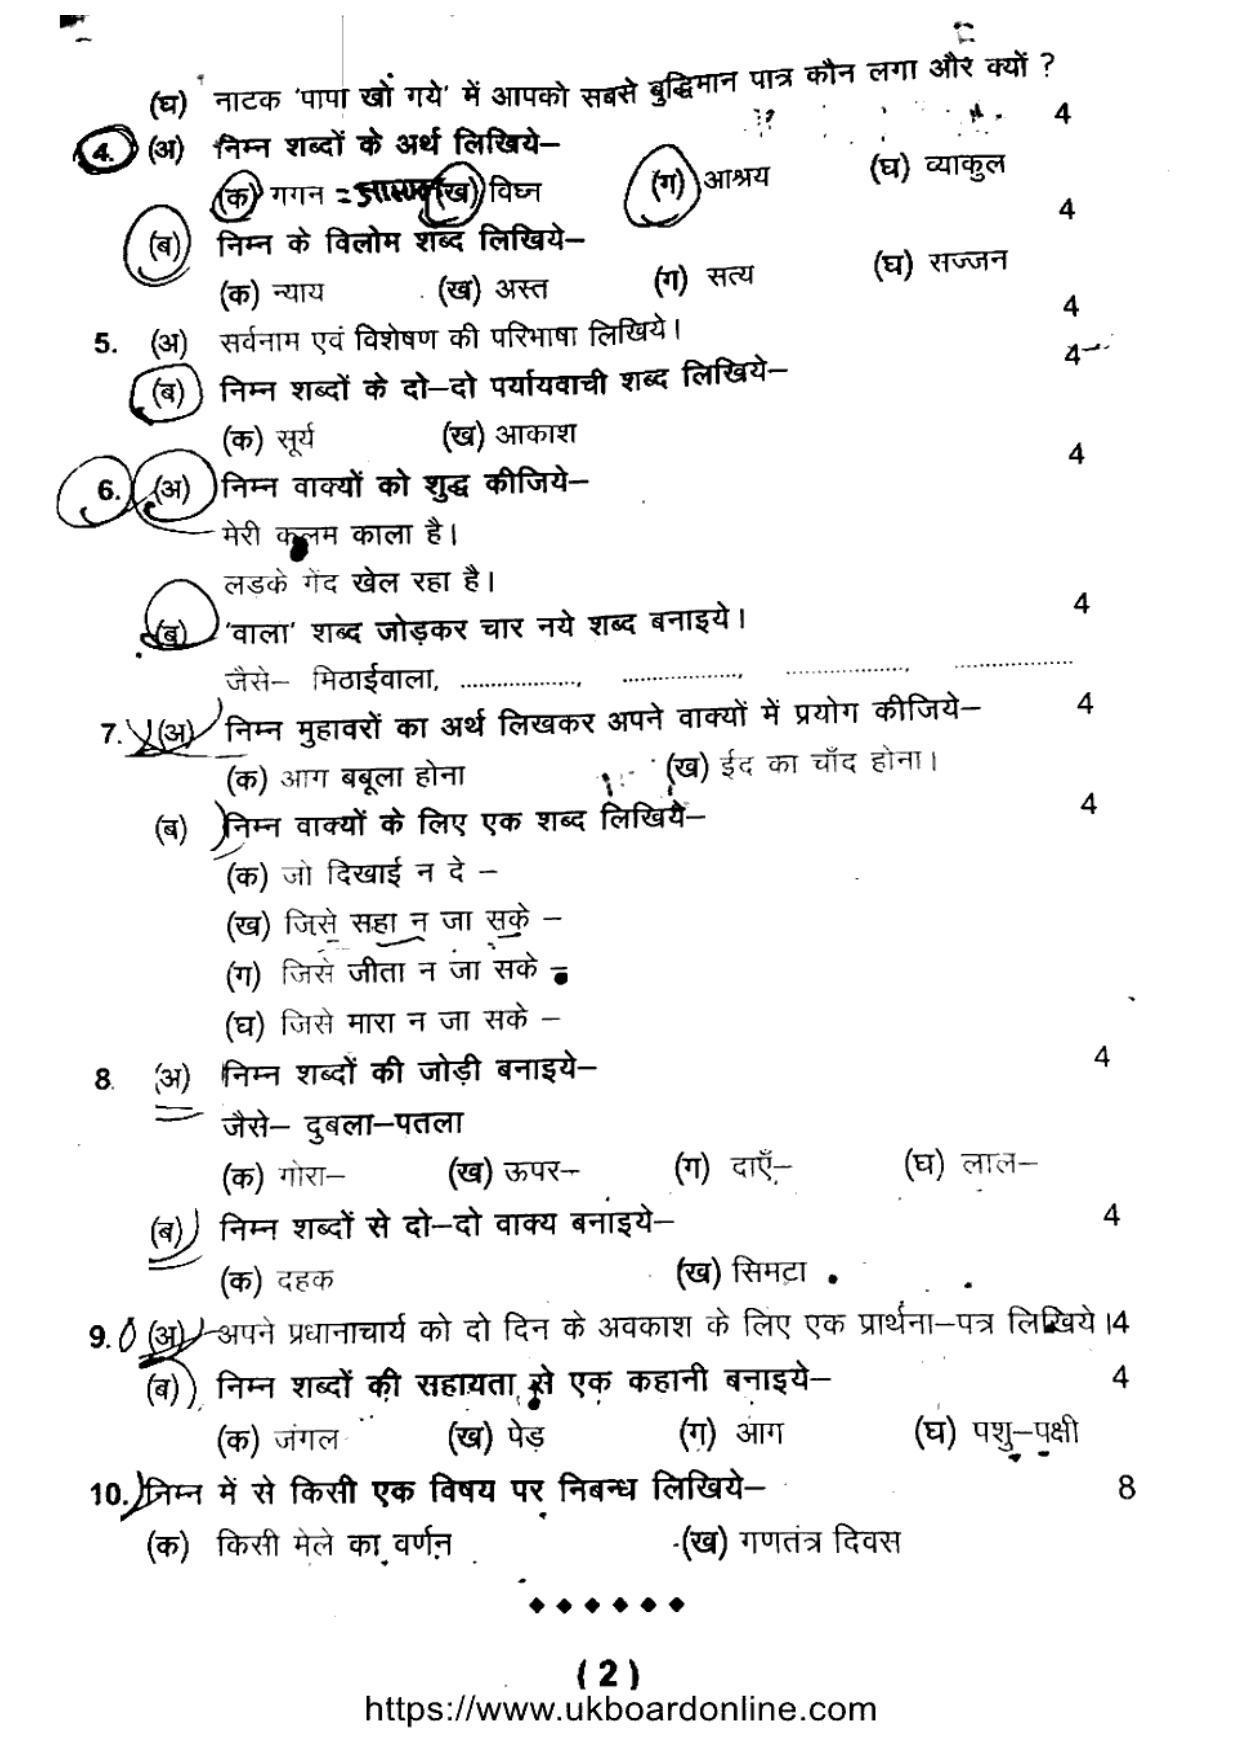 (घ) नाटक 'पापा खो गये' में आपको सबसे बुद्धिमान पात्र कौन लगा और क्यों ?
4. (अ) निम्न शब्दों के अर्थ लिखिये– 4
(क) गगन = (ख) विघ्न (ग) आश्रय (घ) व्याकुल
(ब) निम्न के विलोम शब्द लिखिये– 4
(क) न्याय (ख) अस्त (ग) सत्य (घ) सज्जन
5. (अ) सर्वनाम एवं विशेषण की परिभाषा लिखिये। 4
(ब) निम्न शब्दों के दो–दो पर्यायवाची शब्द लिखिये– 4
(क) सूर्य (ख) आकाश
6. (अ) निम्न वाक्यों को शुद्ध कीजिये– 4
मेरी कलम काला है।
लडके गेंद खेल रहा है।
(ब) 'वाला' शब्द जोड़कर चार नये शब्द बनाइये। 4
जैसे– मिठाईवाला, ...................., ...................., ...................., ....................
7. (अ) निम्न मुहावरों का अर्थ लिखकर अपने वाक्यों में प्रयोग कीजिये– 4
(क) आग बबूला होना (ख) ईद का चाँद होना।
(ब) निम्न वाक्यों के लिए एक शब्द लिखिये– 4
(क) जो दिखाई न दे –
(ख) जिसे सहा न जा सके –
(ग) जिसे जीता न जा सके –
(घ) जिसे मारा न जा सके –
8. (अ) निम्न शब्दों की जोड़ी बनाइये– 4
जैसे– दुबला–पतला
(क) गोरा– (ख) ऊपर– (ग) दाएँ– (घ) लाल–
(ब) निम्न शब्दों से दो–दो वाक्य बनाइये– 4
(क) दहक (ख) सिमटा
9. (अ) अपने प्रधानाचार्य को दो दिन के अवकाश के लिए एक प्रार्थना–पत्र लिखिये। 4
(ब) निम्न शब्दों की सहायता से एक कहानी बनाइये– 4
(क) जंगल (ख) पेड़ (ग) आग (घ) पशु–पक्षी
10. निम्न में से किसी एक विषय पर निबन्ध लिखिये– 8
(क) किसी मेले का वर्णन (ख) गणतंत्र दिवस
(2)
https://www.ukboardonline.com